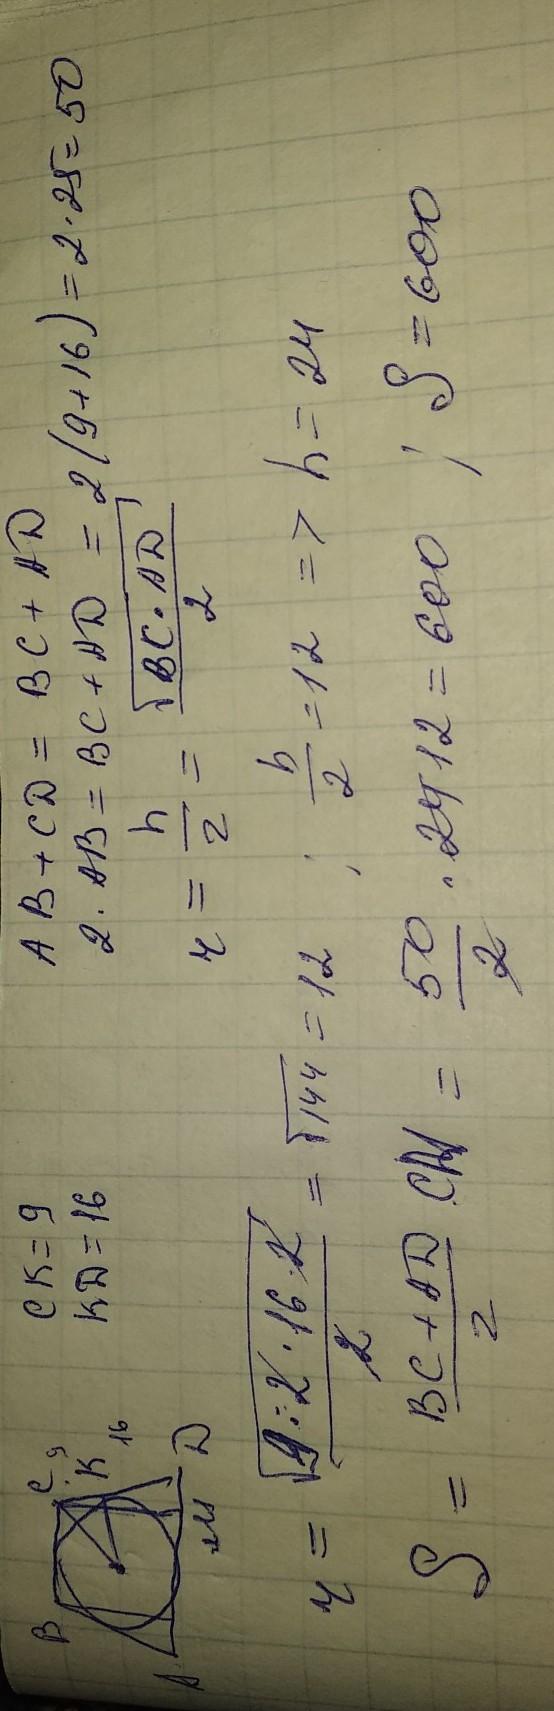 B C 9 K 16 A M D
CK = 9
KD = 16
AB + CD = BC + AD
2 · AB = BC + AD = 2(9+16) = 2·25 = 50
r = h/2 = √BC·AD/2
r = √9·2·16·2/2 = √144 = 12 ; h/2 = 12 => h = 24
S = BC + AD/2 CM = 50/2 · 24 12 = 600 ; S = 600